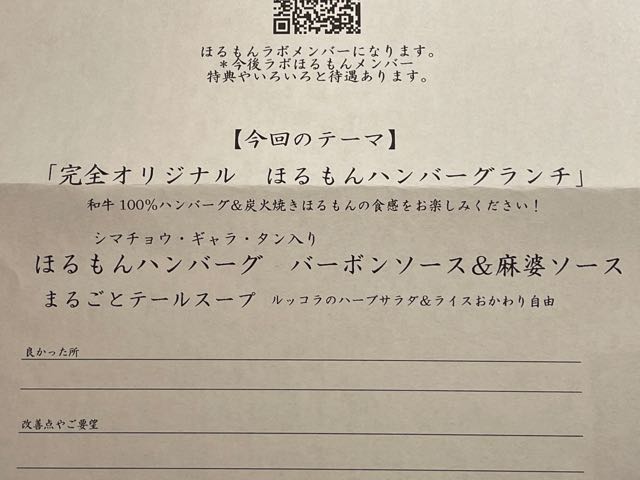 ほるもんラボメンバーになります。
＊今後ラボほるもんメンバー
特典やいろいろと待遇あります。
【今回のテーマ】
「完全オリジナル　ほるもんハンバーグランチ」
和牛100％ハンバーグ＆炭火焼きほるもんの食感をお楽しみください！
シマチョウ・ギャラ・タン入り
ほるもんハンバーグ　バーボンソース＆麻婆ソース
まるごとテールスープ　ルッコラのハーブサラダ＆ライスおかわり自由
良かった所
改善点やご要望